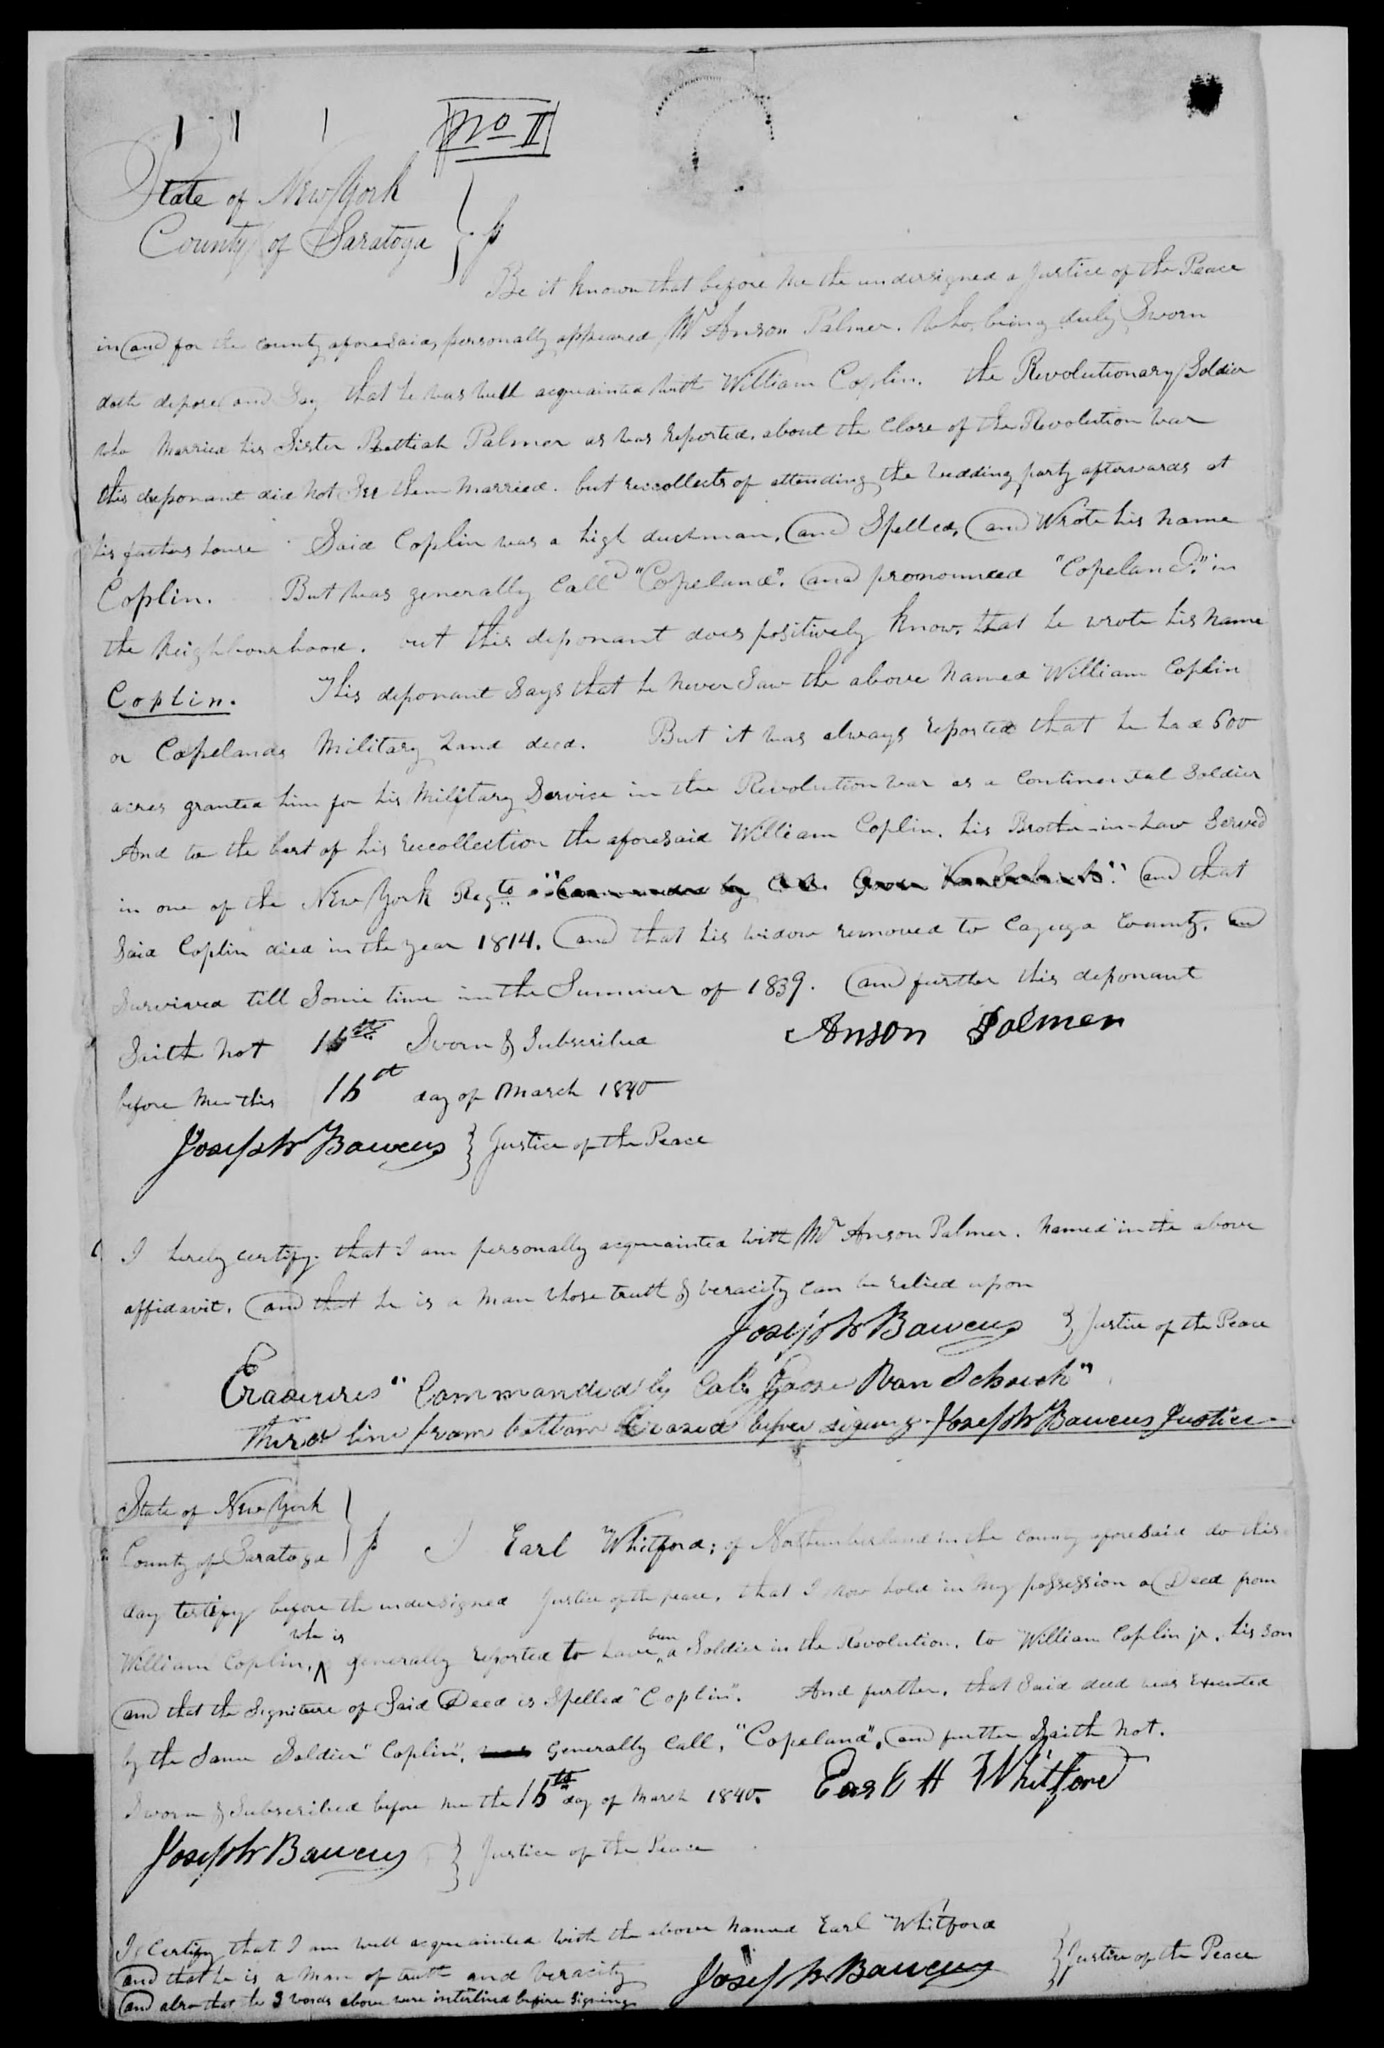 No II
State of New York
County of Saratoga } ss
Be it known that before me the undersigned a Justice of the Peace
in and for the county aforesaid, personally appeared Mr Anson Palmer. Who, being duly Sworn
doth depose and Say that he was well acquainted with William Coplin. the Revolutionary Soldier
who Married his Sister Palmer as was reported, about the Close of the Revolution War
this deponant did not See them Married. but reccollects of attending the wedding party afterwards at
his fathers house Said Coplin was a high duchman, and Spelled, and Wrote his Name
Coplin. But was generally Calld "Copeland", and pronounced "Copeland," in
the Neighbourhood. but this deponant does positively know, that he wrote his Name
Coplin. This deponant Says that he never Saw the above Named William Coplin
or Copelands Military Land deed. But it was always reported that he had 600
acres granted him for his Military Service in the Revolution War as a Continental Soldier
And to the best of his reccollection the aforesaid William Coplin, his Brother-in-Law Served
in one of the New York Regts "Commanded by Col. Gose Van Schaick" and that
Said Coplin died in the year 1814. and that his widow removed to Cayuga County, and
Survived till Some time in the Summer of 1839. and further this deponant
Saith not 16th Sworn & Subscribed Anson Palmer
before Me this 16th day of March 1840
Joseph Bawcus } Justice of the Peace
I hereby certify that I am personally acquainted with Mr Anson Palmer. Named in the above
affidavit. and that he is a man whose truth & veracity can be relied upon
Joseph Bawcus } Justice of the Peace
Erasures "Commanded by Col. Gose Van Schaick"
third line from bottom Erased before signing Joseph Bawcus Justice
State of New York
County of Saratoga } ss I Earl Whitford; of Northumberland in the County aforesaid do this
day testify before the undersigned Justice of the peace, that I now hold in my possession a Deed from
who is been
William Coplin, ^ generally reported to have a Soldier in the Revolution, to William Coplin jr, his Son
and that the Signiture of Said Deed is Spelled "Coplin". And further, that Said deed was Executed
by the Same Soldier "Coplin", was Generally Call, "Copeland", and further Saith Not.
Sworn & Subscribed before me the 16th day of March 1840. Earl H Whitford
Joseph Bawcus } Justice of the Peace
I Certify that I am well acquainted with the above Named Earl Whitford
and that he is a Man of truth and veracity Joseph Bawcus } Justice of the Peace
and also that the 3 words above were interlined before Signing